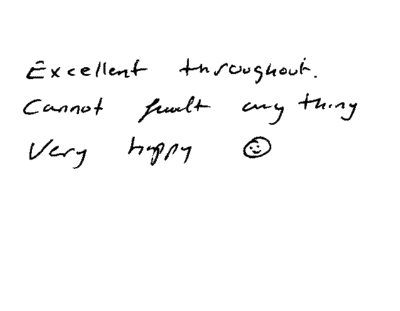 Excellent throughout.
Cannot fault any thing
Very happy ☺